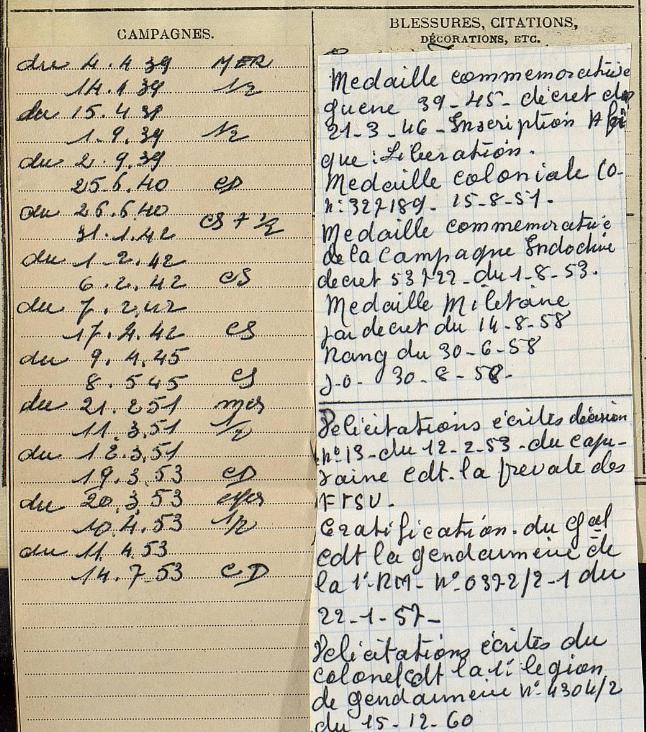 CAMPAGNES.
du 4.4 39 MER
14.4 39 1/2
du 15.4 39
1.9.39 1/2
du 2.9.39
25.6.40 CD
du 26.6.40
31.1.42 CS + 1/2
du 1-2.42
6.2.42 CS
du 7.2.42
17.4.42 CS
du 9.4.45
8.5 45 CS
du 21.2 51 mer
11.3.51 1/2
du 12.3.51
19.3.53 CD
du 20.3.53
10.4.53 1/2
du 11.4.53
14.7.53 CD
BLESSURES, CITATIONS,
DÉCORATIONS, ETC.
Medaille commemorative
guerre 39-45- décret du
21-3-46- Inscription Afri
que: Liberation.
Medaille coloniale Co-
n: 327189. 15-8-51.
Medaille commemorative
de la Campagne Indochine
decret 53722- du 1-8-53.
Medaille Militaire
par decret du 14-8-58
Rang du 30-6-58
J-O- 30-8-58-
Felicitations écrites décision
n° 13- du 12-2-53- du capi-
taine cdt. la prevate des
FTSV.
Gratification. du Gal
cdt la gendarmerie de
la 1° RM- N° 0372/2-1 du
22-1-57-
Felicitations écrites du
colonel cdt la 1° legion
de gendarmerie N° 4304/2
du 15-12-60